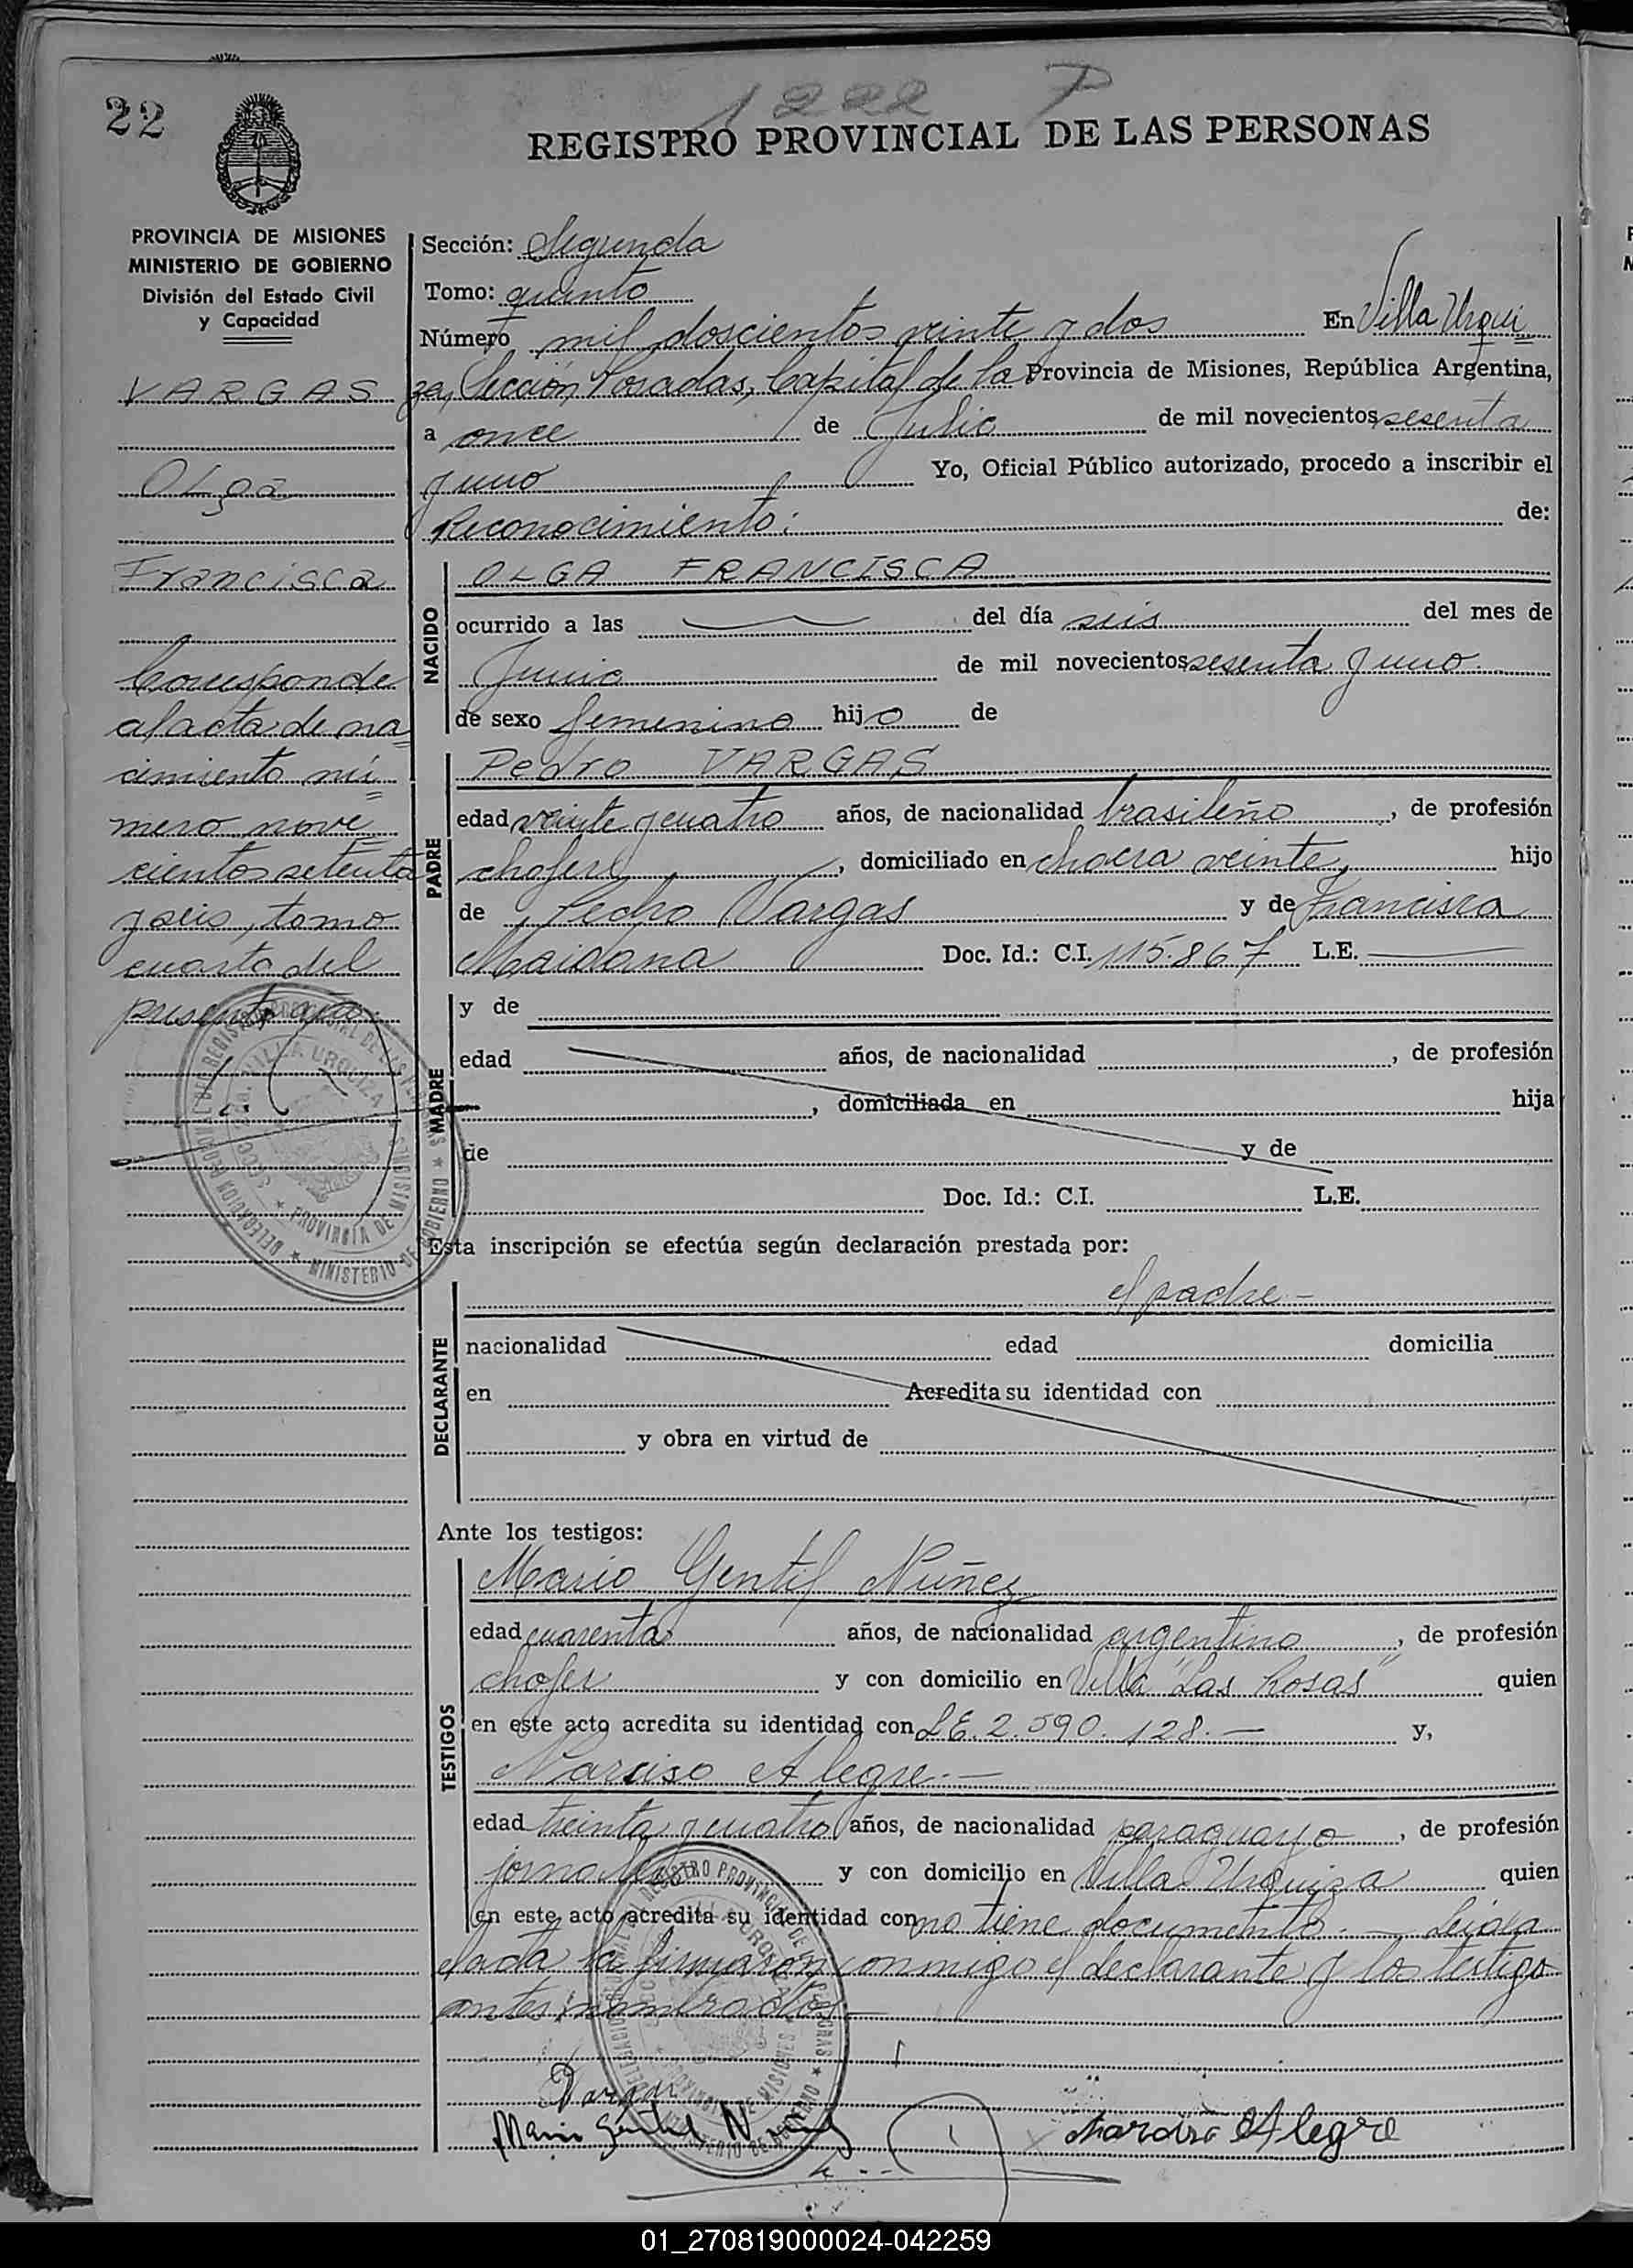 1222 P
22
REGISTRO PROVINCIAL DE LAS PERSONAS
PROVINCIA DE MISIONES
MINISTERIO DE GOBIERNO
División del Estado Civil
y Capacidad
VARGAS
Olga
Francisca
Corresponde
al acta de na
cimiento nú
mero nove
cientos setenta
y seis, tomo
cuarto del
presente año.
Sección: Segunda
Tomo: quinto
Número mil doscientos veinte y dos En Villa Urqui
za, Sección Posadas, Capital de la Provincia de Misiones, República Argentina,
a once de Julio de mil novecientos sesenta
y uno Yo, Oficial Público autorizado, procedo a inscribir el
Reconocimiento: de:
NACIDO
OLGA FRANCISCA
ocurrido a las del día seis del mes de
Junio de mil novecientos sesenta y uno
de sexo femenino hijo de
PADRE
Pedro VARGAS
edad veinte y cuatro años, de nacionalidad brasileño, de profesión
chofer, domiciliado en chacra veinte, hijo
de Pedro Vargas y de Francisca
Maidana Doc. Id.: C.I. 115.867 L.E.
MADRE
y de
edad años, de nacionalidad , de profesión
, domiciliada en hija
de y de
Doc. Id.: C.I. L.E.
Esta inscripción se efectúa según declaración prestada por:
DECLARANTE
el padre -
nacionalidad edad domicilia
en Acredita su identidad con
y obra en virtud de
Ante los testigos:
TESTIGOS
Mario Gentil Núñez
edad cuarenta años, de nacionalidad argentino, de profesión
chofer y con domicilio en Villa "Las Rosas" quien
en este acto acredita su identidad con L.E. 2.590.128.— y,
Narciso Alegre.—
edad treinta y cuatro años, de nacionalidad paraguayo, de profesión
jornalero y con domicilio en Villa Urquiza quien
en este acto acredita su identidad con no tiene documento.— Leida
el acta la firmaron conmigo el declarante y los testigos
antes nombrados.—
Vargas
Mario Gentil Nuñez
Narciso Alegre
01_270819000024-042259